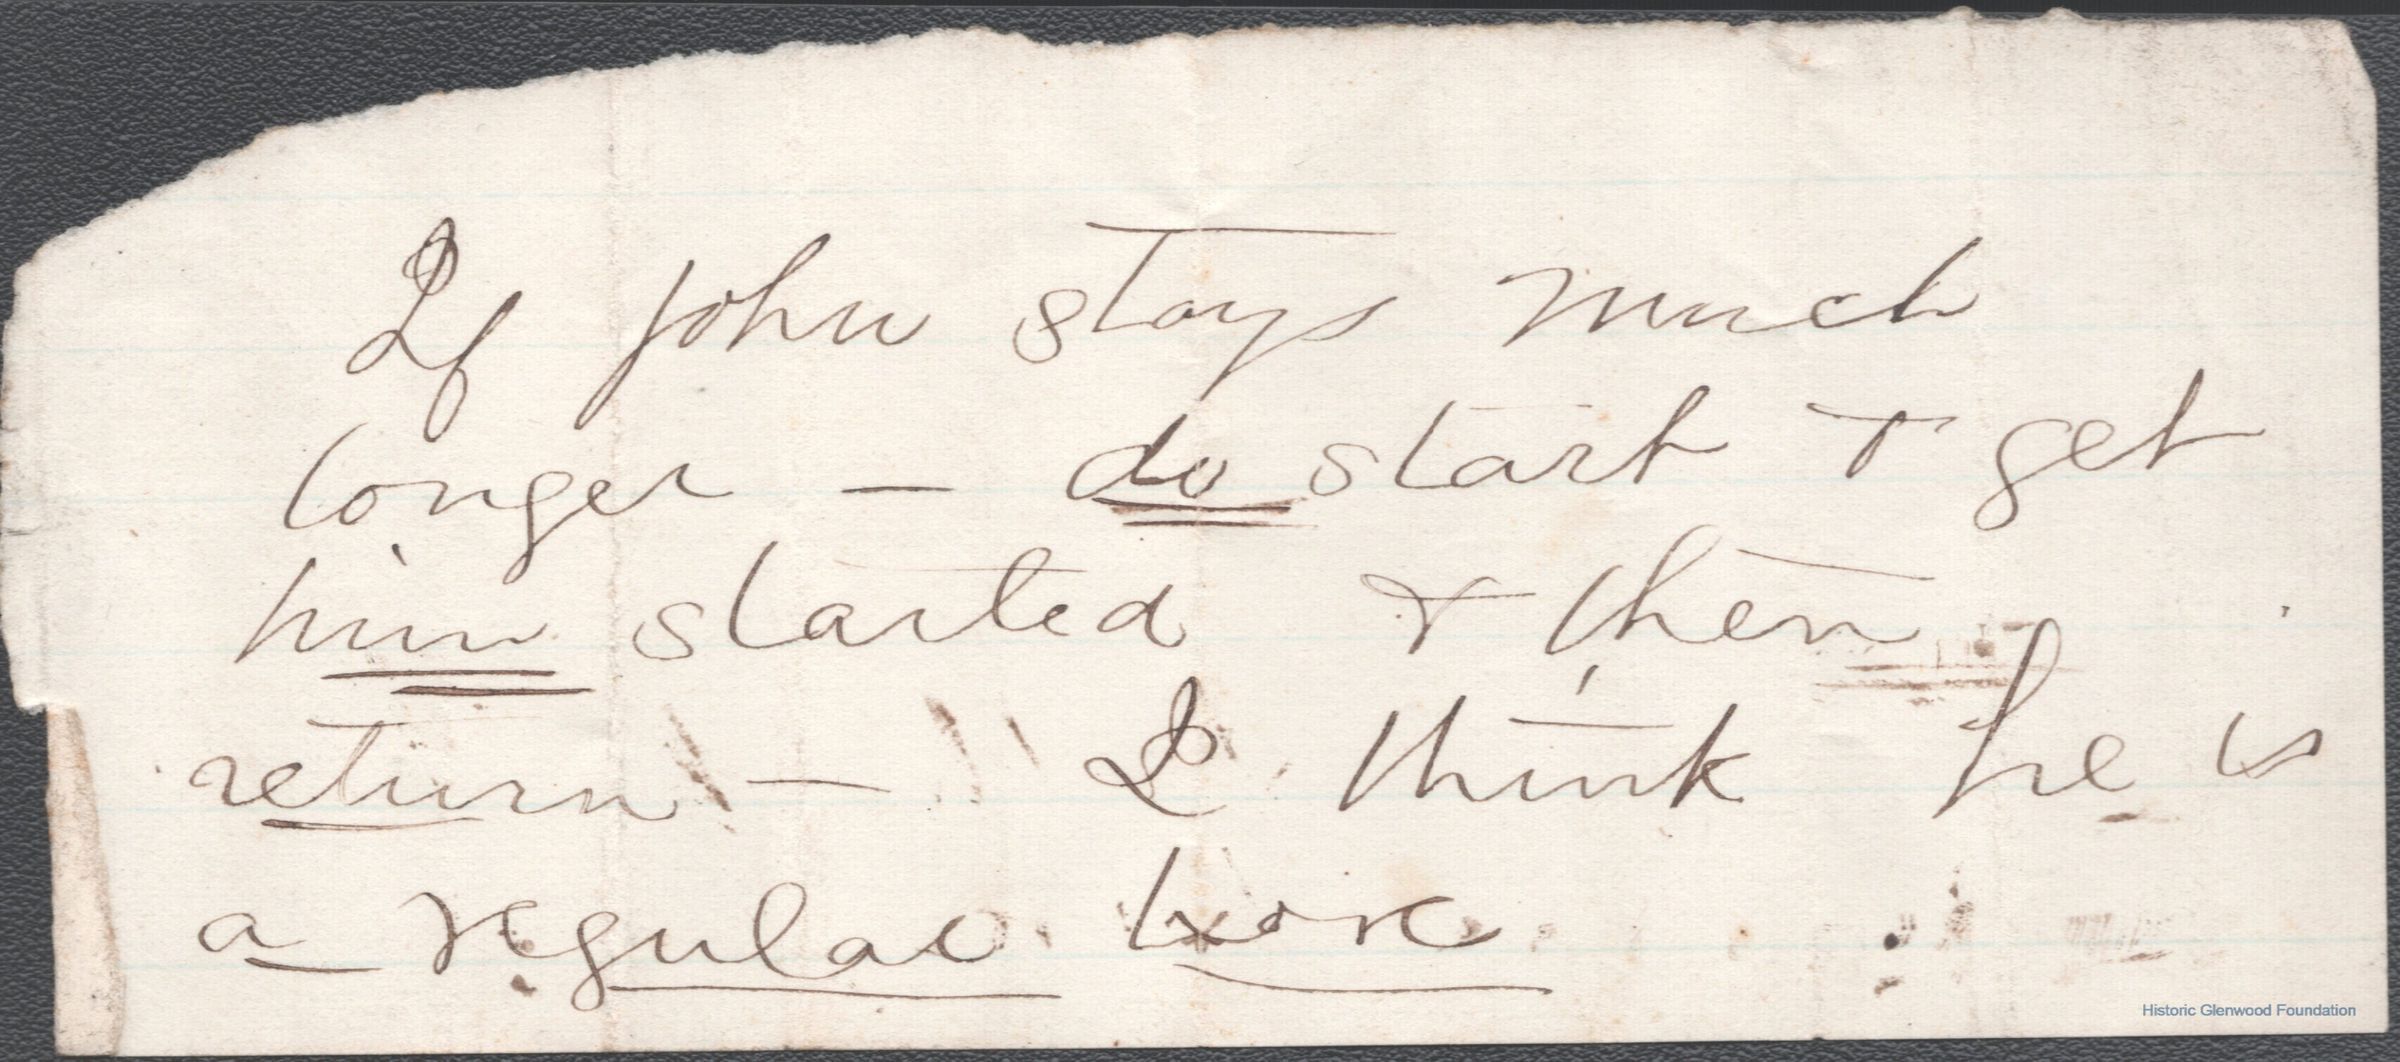 If John stays much
longer — do start & get
him started & then
return — I think he is
a regular bore
Historic Glenwood Foundation